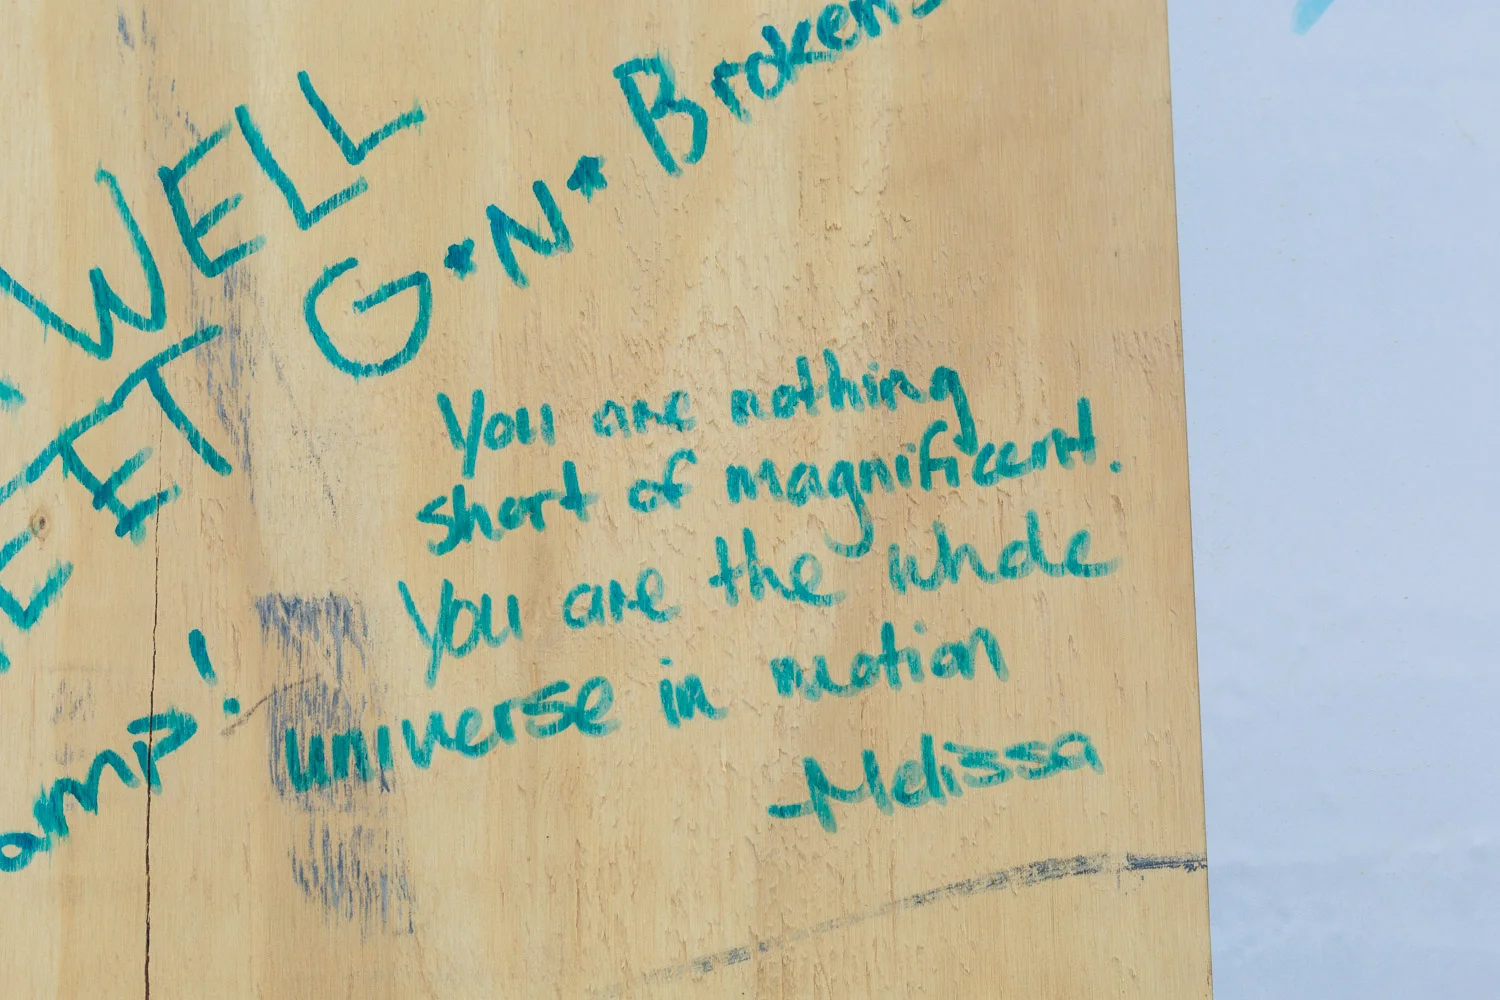 WELL
G•N•Broken
EET
amp!
You are nothing
short of magnificent.
You are the whole
universe in motion
-Melissa